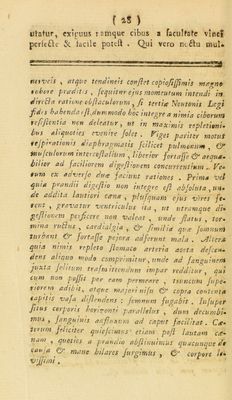 ( 28 )
utatur, exiguus namque cibus a facultate vinci
perfecte & facile potest. Qui vero noctu mul-
nerveis, atque tendineis constet copiosissimis magno
robore praditis, sequitur ejus momentum intendi in
directa ratione obstaculorum, si tertiæ Neutonis Legi
fides habenda est, dummodo hoc integre a nimia ciborum
resistentia non deleatur, ut in maximis repletioni-
bus aliquoties evenire solet. Viget pariter motus
respirationis diaphragmatis scilicet pulmonum, &
musculorum intercostalium, liberior fortasse & æqua-
bilior ad faciliorem digestionem concurrentium. Ve-
rum ex adverso duæ faciunt rationes. Prima vel
quia prandii digestio non integre est absoluta, un-
de addita lautiori cœna, plusquam ejus vires fe-
rent, gravatur ventriculus ita, ut utrumque di-
gestionem perficere non valeat, unde flatus, tor-
mina ructus, cardialgia, & similia quæ somnum
turbant & fortasse pejora adferunt mala. Altera
quia nimis repleto stomaco arteria aorta descen-
dens aliquo modo comprimitur, unde ad sanguinem
juxta solitum trasmittendum impar redditur, qui
cum non possit per eam permeare, truncum supe-
riorem adibit, atque majori nisu & copia contenta
capitis vasa distendens: somnum fugabit. Insuper
situs corporis horizonti parallelus, dum decumbi-
mus, sanguinis ascensum ad caput facilitat. Cæ-
terum feliciter quiescimus etiam post lautam cœ-
nam, quoties a prandio abstinuimus quacunque de
causa & mane hilares surgimus, & corpore le-
vissimi.